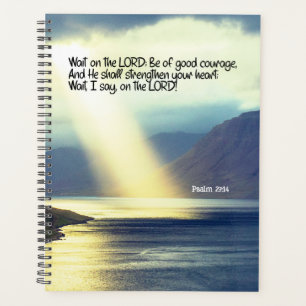 Wait on the LORD: Be of good courage,
And He shall strengthen your heart;
Wait, I say, on the LORD!
Psalm 27:14